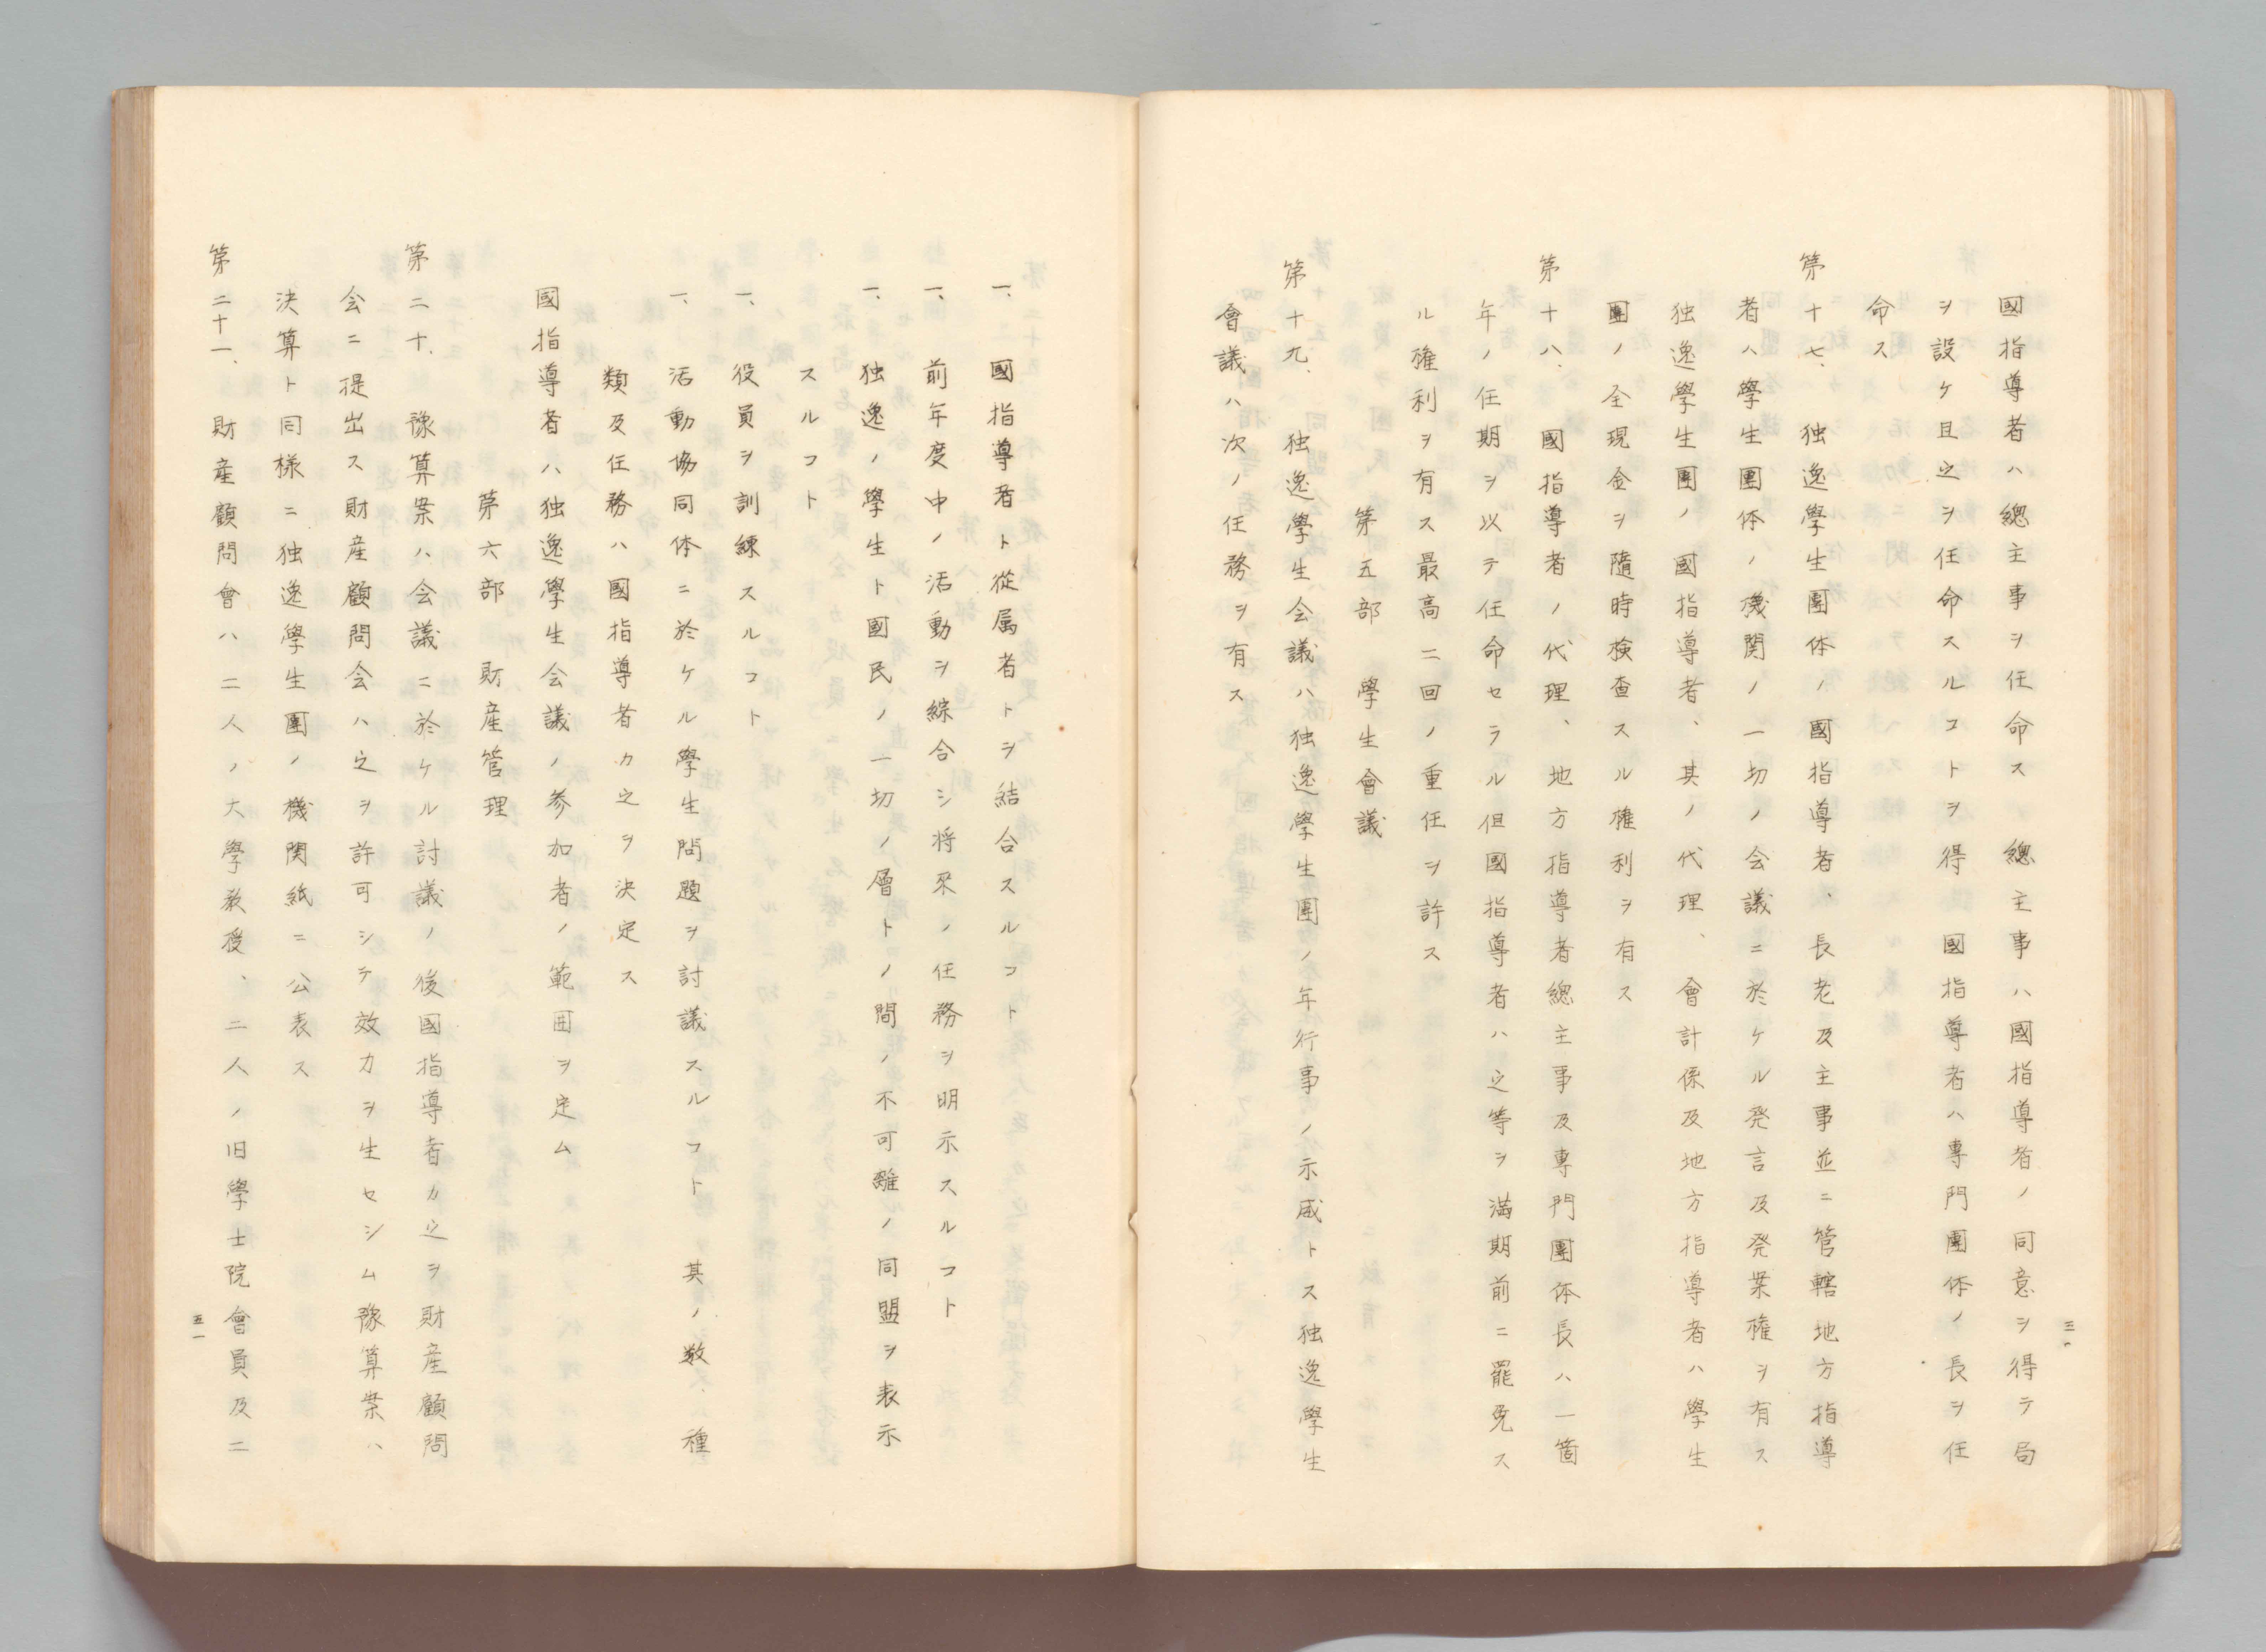 國指導者ハ總主事ヲ任命ス 總主事ハ國指導者ノ同意ヲ得テ局
ヲ設ケ且之ヲ任命スルコトヲ得 國指導者ハ專門團体ノ長ヲ任
命ス
第十七、 独逸學生團体ノ國指導者、長老及主事並ニ管轄地方指導
者ハ學生團体ノ機関ノ一切ノ会議ニ於ケル発言及発案権ヲ有ス
独逸學生團ノ國指導者、其ノ代理、會計係及地方指導者ハ學生
團ノ全現金ヲ隨時検査スル権利ヲ有ス
第十八、 國指導者ノ代理、地方指導者總主事及專門團体長ハ一箇
年ノ任期ヲ以テ任命セラル但國指導者ハ之等ヲ満期前ニ罷免ス
ル権利ヲ有ス最高二回ノ重任ヲ許ス
第五部 學生會議
第十九、 独逸學生会議ハ独逸學生團ノ年行事ノ示威トス独逸學生
會議ハ次ノ任務ヲ有ス
一、國指導者ト從属者トヲ結合スルコト
一、前年度中ノ活動ヲ綜合シ将来ノ任務ヲ明示スルコト
一、独逸ノ學生ト國民ノ一切ノ層トノ間ノ不可離ノ同盟ヲ表示
スルコト
一、役員ヲ訓練スルコト
一、活動協同体ニ於ケル學生問題ヲ討議スルコト其ノ数、種
類及任務ハ國指導者カ之ヲ決定ス
國指導者ハ独逸學生会議ノ参加者ノ範囲ヲ定ム
第六部 財産管理
第二十、 豫算案ハ会議ニ於ケル討議ノ後國指導者カ之ヲ財産顧問
会ニ提出ス財産顧問会ハ之ヲ許可シテ效力ヲ生セシム豫算案ハ
決算ト同様ニ独逸學生團ノ機関紙ニ公表ス
第二十一、 財産顧問會ハ二人ノ大學教授、二人ノ旧學士院會員及二
五一